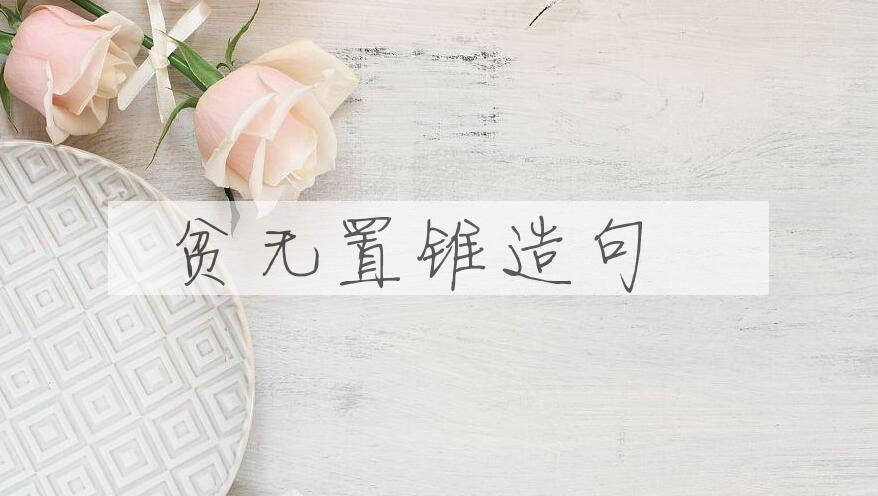 贫无置锥造句